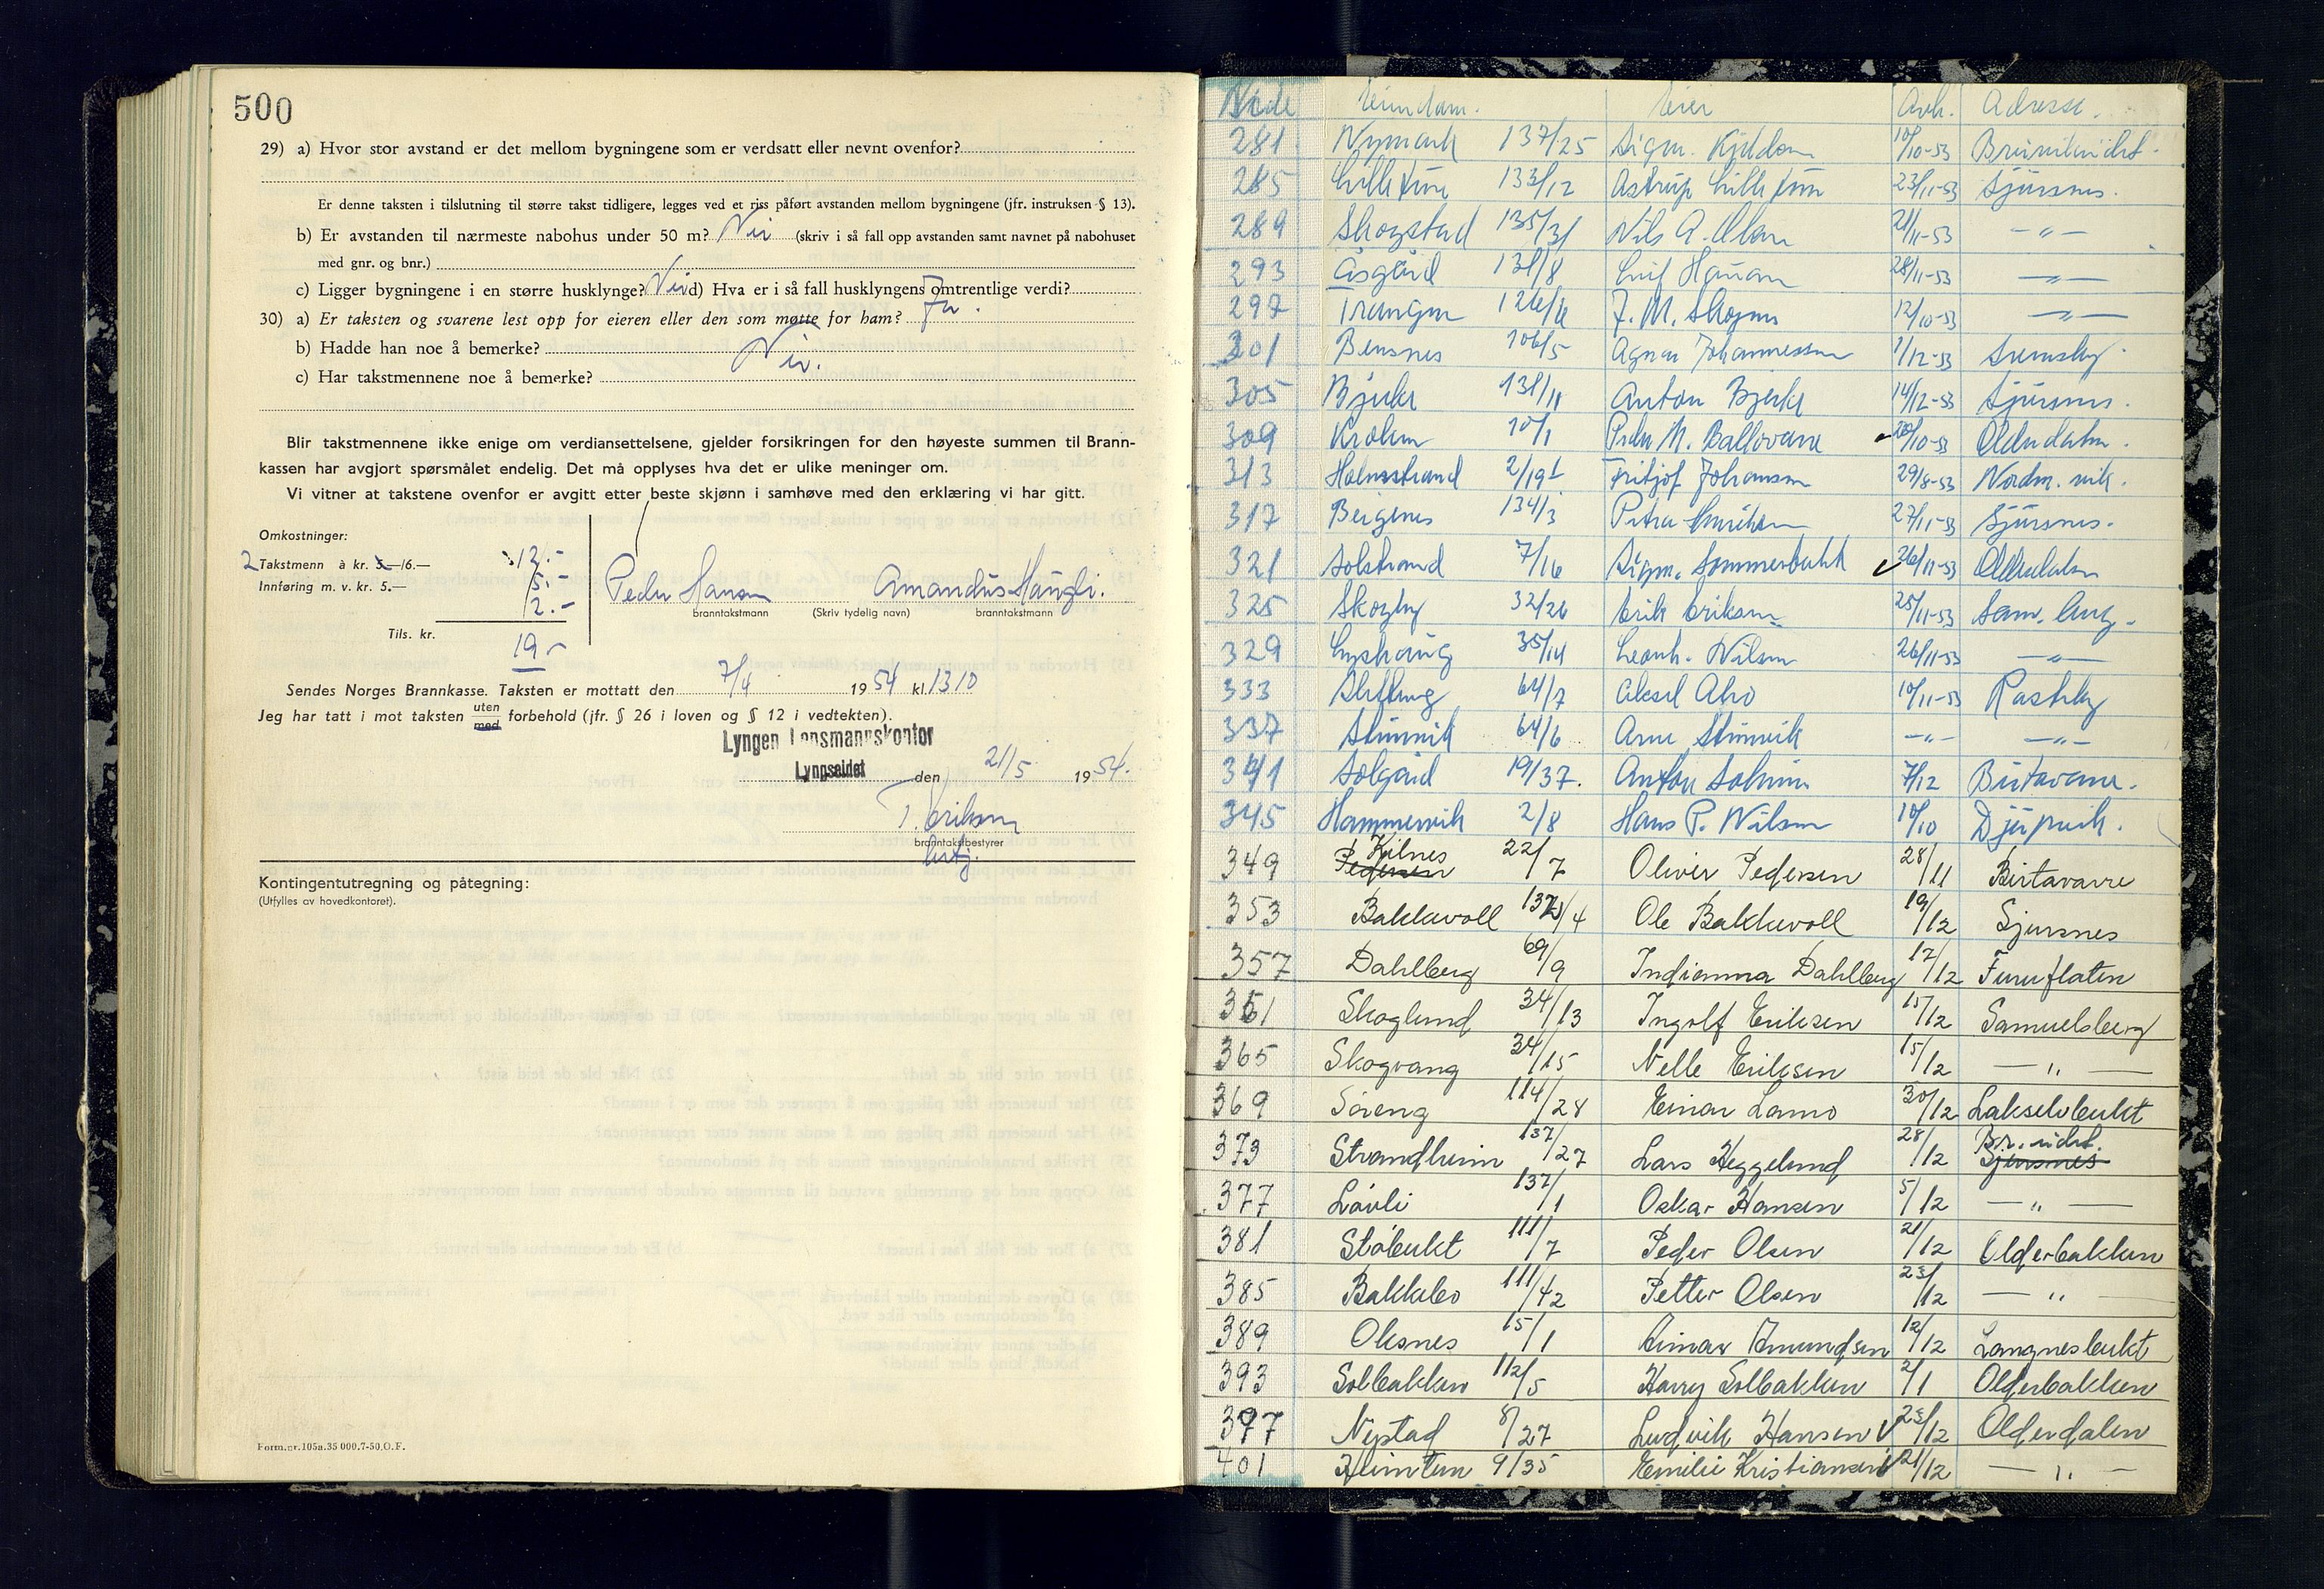 500
29) a) Hvor stor avstand er det mellom bygningene som er verdsatt eller nevnt ovenfor?
Er denne taksten i tilslutning til større takst tidligere, legges ved et riss påført avstanden mellom bygningene (jfr. instruksen § 13).
b) Er avstanden til nærmeste nabohus under 50 m? Nei (skriv i så fall opp avstanden samt navnet på nabohuset
med gnr. og bnr.)
c) Ligger bygningene i en større husklynge? Nei d) Hva er i så fall husklyngens omtrentlige verdi?
30) a) Er taksten og svarene lest opp for eieren eller den som møtte for ham? Ja.
b) Hadde han noe å bemerke? Nei.
c) Har takstmennene noe å bemerke?
Blir takstmennene ikke enige om verdiansettelsene, gjelder forsikringen for den høyeste summen til Brann-
kassen har avgjort spørsmålet endelig. Det må opplyses hva det er ulike meninger om.
Vi vitner at takstene ovenfor er avgitt etter beste skjønn i samhøve med den erklæring vi har gitt.
Omkostninger:
2 Takstmenn à kr. 3.—/6.— 12.-
Innføring m. v. kr. 5.— 5.-
2.-
Tils. kr. 19.-
Peder Hansen Amandus Haugli.
branntakstmann (Skriv tydelig navn) branntakstmann
Sendes Norges Brannkasse. Taksten er mottatt den 7/4 1954 kl. 1310
Jeg har tatt i mot taksten uten/med forbehold (jfr. § 26 i loven og § 12 i vedtekten).
Lyngen Lensmannskontor
Lyngseidet den 21/5 1954.
T. Eriksen
branntakstbestyrer
betj.
Kontingentutregning og påtegning:
(Utfylles av hovedkontoret).
Form.nr.105a.35 000.7-50.O.F.
Side Eiendom. Eier Avh. Adresse.
281 Nymark 137/25 Sigm. Kjeldsen 10/10-53
285 Lilletun 133/12 Astrup Lilletun 23/11-53 Sjursnes.
289 Skogstad 135/31 Nils A. Olsen 21/11-53 -"-
293 Åsgård 131/8 Leif Hansen 28/11-53 -"-
297 126/6 J. M. Skognes 12/10-53 -"-
301 Bensnes 106/5 Agnar Johannessen 1/12-53 Svensby.
305 Bjerke 131/11 Anton Bjerke 14/12-53 Sjursnes.
309 10/1 Peder M. Ballovara 20/10-53 Olderdalen.
313 Holmstrand 2/191 Fritjof Johansen 29/8-53 Nordm. vik.
317 Bergenes 134/3 Petra Henriksen 27/11-53 Sjursnes.
321 Solstrand 7/16 Sigm. Sommerbakk 26/11-53 Olderdalen
325 Skogly 32/26 Erik Eriksen 25/11-53 Sam. berg.
329 Lyshaug 35/14 Leonh. Nilsen 26/11-53 -"-
333 Sletteng 64/7 Aksel Alvo 10/11-53 Rasteby
337 Steinvik 64/6 Arne Steinvik -"- -"-
341 Solgård 19/37. Anton Solheim 7/12 Birtavarre.
345 Hammervik 2/8 Hans P. Nilsen 10/10 Djupvik.
349 Pedersen Kilnes 22/7 Oliver Pedersen 28/11 Birtavarre
353 Bakkevoll 137/4 Ole Bakkevoll 19/12 Sjursnes
357 Dahlberg 69/9 Indianna Dahlberg 17/12 Furuflaten
361 Skoglund 34/13 Ingolf Eriksen 15/12 Samuelsberg
365 Skogvang 34/15 Nelle Eriksen 15/12 — " —
369 Søreng 114/28 Einar Lamo 30/12 Lakselvbukt
373 Strandheim 137/27 Lars Heggelund 28/12 Br. eidet. Sjursnes
377 Løvli 137/1 Oskar Hansen 5/12 — " —
381 Støbukt 111/7 Peder Olsen 21/12 Olderbakken
385 Bakkebo 111/42 Petter Olsen 23/12 — " —
389 Oksnes 15/1 Einar Amundsen 12/12 Langnesbukt
393 Solbakken 112/5 Harry Solbakken 2/1 Olderbakken
397 Nystad 8/27 Ludvik Hansen 23/12 Olderdalen
401 Heimtun 9/35 Emilie Kristiansen 21/12 — " —